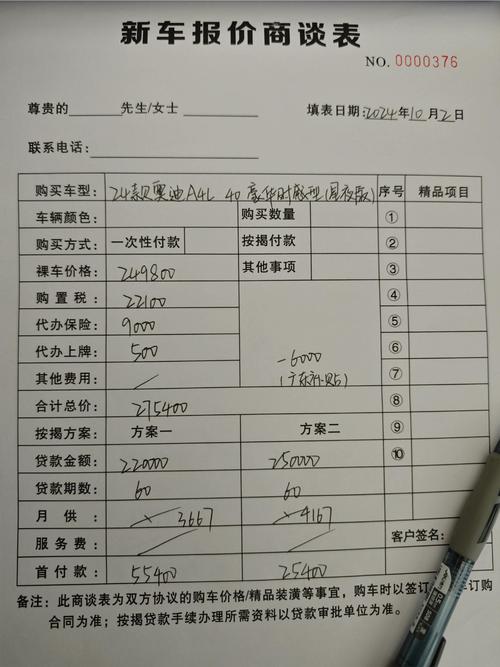 新车报价商谈表
NO. 0000376
尊贵的 先生/女士 填表日期:2024年10月2日
联系电话:
购买车型: 24款奥迪A4L 40 豪华时尚型(黑夜版) 序号 精品项目
车辆颜色: 购买数量 ①
购买方式: 一次性付款 按揭付款 ②
裸车价格: 249800 其他事项 ③
购置税: 22100 ④
代办保险: 9000 ⑤
代办上牌: 500 -6000 ⑥
其他费用: / (广东补贴) ⑦
合计总价: 275400 ⑧
按揭方案: 方案一 方案二 ⑨
贷款金额: 220000 250000 ⑩
贷款期数: 60 60
月供: × 3667 × 4167
服务费: / / 客户签名:
首付款: 55400 25400
备注:此商谈表为双方协议的购车价格/精品装潢等事宜,购车时以签订 车订购
合同为准;按揭贷款手续办理所需资料以贷款审批单位为准。